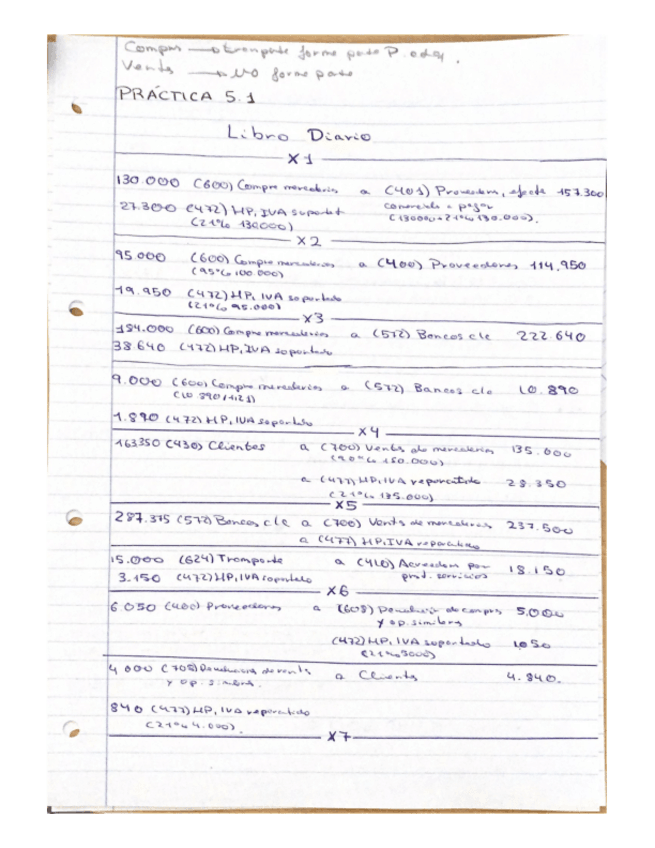 Compras → transporte forma parte P. adq.
Ventas → NO forma parte
PRÁCTICA 5.1
Libro Diario
X1
130.000 (600) Compra mercaderías a (401) Proveedores, efectos 157.300
27.300 (472) HP, IVA soportado comerciales a pagar
(21% 130000) (130000+21% 130.000).
X2
95.000 (600) Compra mercaderías a (400) Proveedores 114.950
(95% 100.000)
19.950 (472) HP, IVA soportado
(21% 95.000)
X3
184.000 (600) Compra mercaderías a (572) Bancos c/c 222 640
38.640 (472) HP, IVA soportado
9.000 (600) Compra mercaderías a (572) Bancos c/c 10.890
(10 890/1'21)
1.890 (472) HP, IVA soportado
X4
163350 (430) Clientes a (700) Ventas de mercaderías 135.000
(90% 150.000)
a (477) HP, IVA repercutido 28.350
(21% 135.000)
X5
287.375 (572) Bancos c/c a (700) Venta de mercaderías 237.500
a (477) HP, IVA repercutido
15.000 (624) Transporte a (410) Acreedores por 18.150
3.150 (472) HP, IVA soportado prest. servicios
X6
6.050 (400) Proveedores a (608) Devolución de compras 5,000
y op. similares
(472) HP, IVA soportado 1,050
(21% 5000)
4.000 (708) Devoluciones de venta a Clientes 4.840.
y op. similares.
840 (477) HP, IVA repercutido
(21% 4.000).
X7